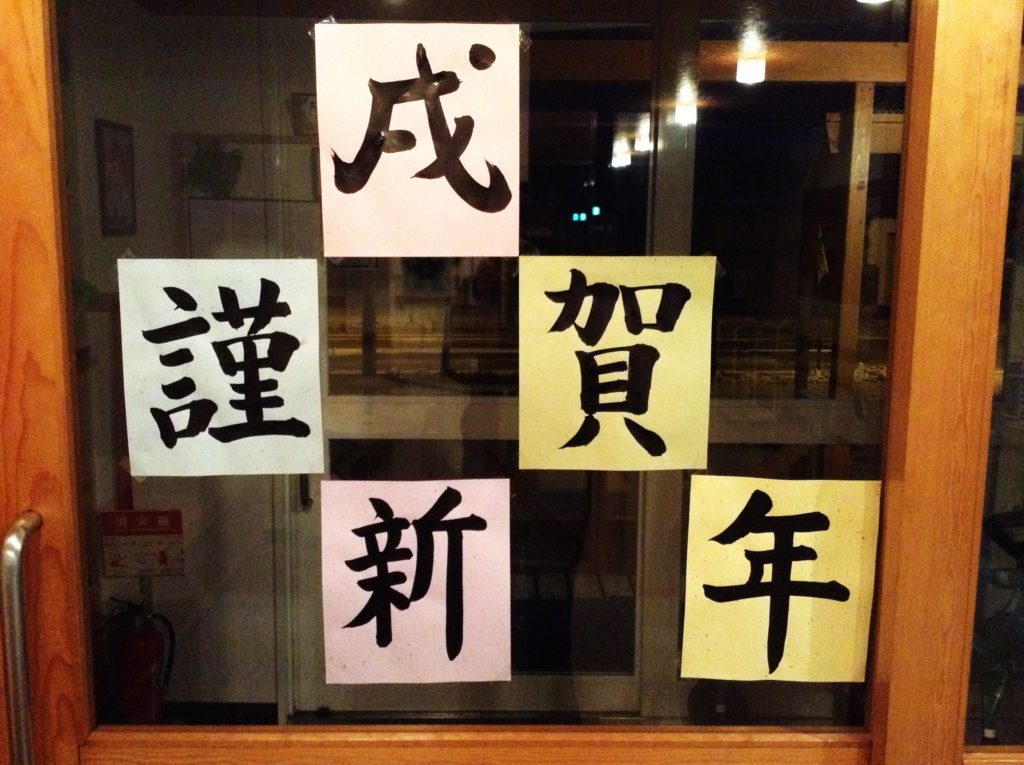 戌
謹賀
新年
消火器